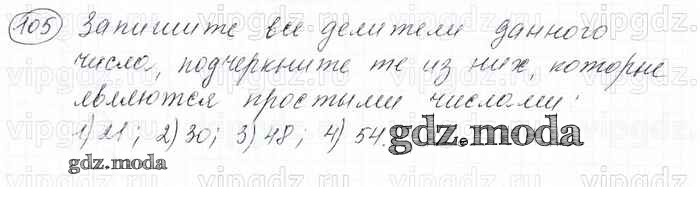 105 Запишите все делители данного
числа, подчеркните те из них, которые
являются простыми числами:
1) 21; 2) 30; 3) 48; 4) 54. gdz.moda
gdz.moda